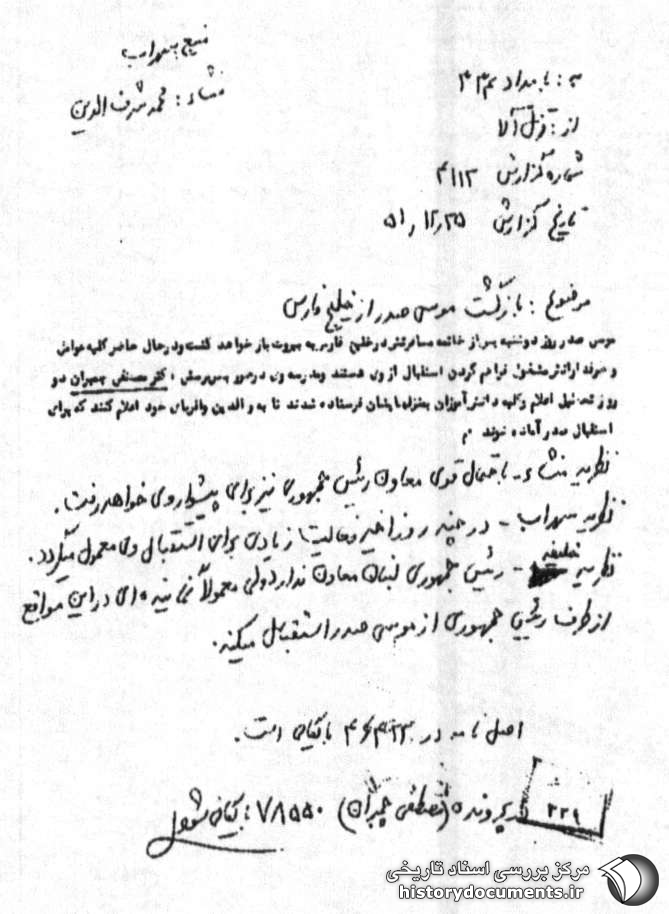 منبع: سهراب
منشاء: محمد شرف الدین
به: بامداد ۳۳۴
از:
شماره گزارش ۴۱۱۲
تاریخ گزارش ۵۱٫۱۲٫۲۵
موضوع: بازگشت موسی صدر از خلیج فارس
موسی صدر روز دوشنبه پس از خاتمه مسافرتش در خلیج فارس به بیروت باز خواهد گشت و در حال حاضر کلیه عوامل
و طرفدارانش مشغول فراهم کردن استقبال از وی هستند و مدرسه وی در صور بسرپرستی دکتر مصطفی چمران دو
روز تعطیل اعلام و کلیه دانش آموزان بمنزلهایشان فرستاده شدند تا به والدین و اقربای خود اعلام کنند که برای
استقبال صدر آماده شوند م
نظریه منشاء - باحتمال قوی معاون رئیس جمهوری نیز برای پیشواز وی خواهد رفت.
نظریه سهراب - در چند روز اخیر فعالیت زیادی برای استقبال وی معمول میگردد.
نظریه خلیفه - رئیس جمهوری لبنان معاون ندارد ولی معمولاً نماینده ای در این مواقع
از طرف رئیس جمهوری از موسی صدر استقبال میکند.
اصل نامه در ۴۶۴۲۳ بایگانی است.
در پرونده (مصطفی چمران) ۷۸۵۵۰ بایگانی شود
۲۲۹
مرکز بررسی اسناد تاریخی
historydocuments.ir